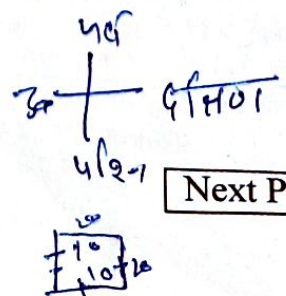 पूर्व
उ० दक्षिण
पश्चिम
Next P
20
10
10 20